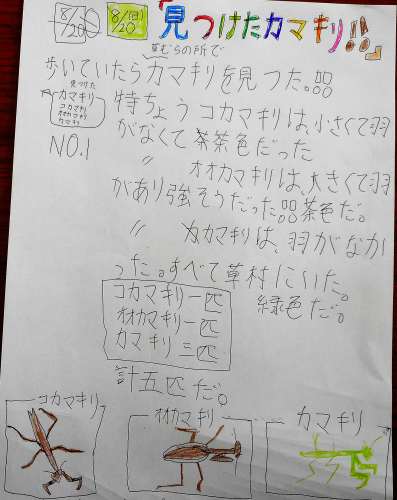 8/20
8/20(日)
「見つけたカマキリ!!」
草むらの所で
歩いていたらカマキリを見つた。
見つけた
カマキリ
コカマキリ
オオカマキリ
カマキリ
NO.1
特ちょう コカマキリは、小さくて羽
がなくて茶茶色だった
〃 オオカマキリは、大きくて羽
があり強そうだった。茶色だ。
〃 カカマキリは、羽がなか
った。すべて草村にいた。
緑色だ。
コカマキリ一匹
オオカマキリ一匹
カマキリ 三匹
計五匹だ。
コカマキリ
オオカマキリ
カマキリ